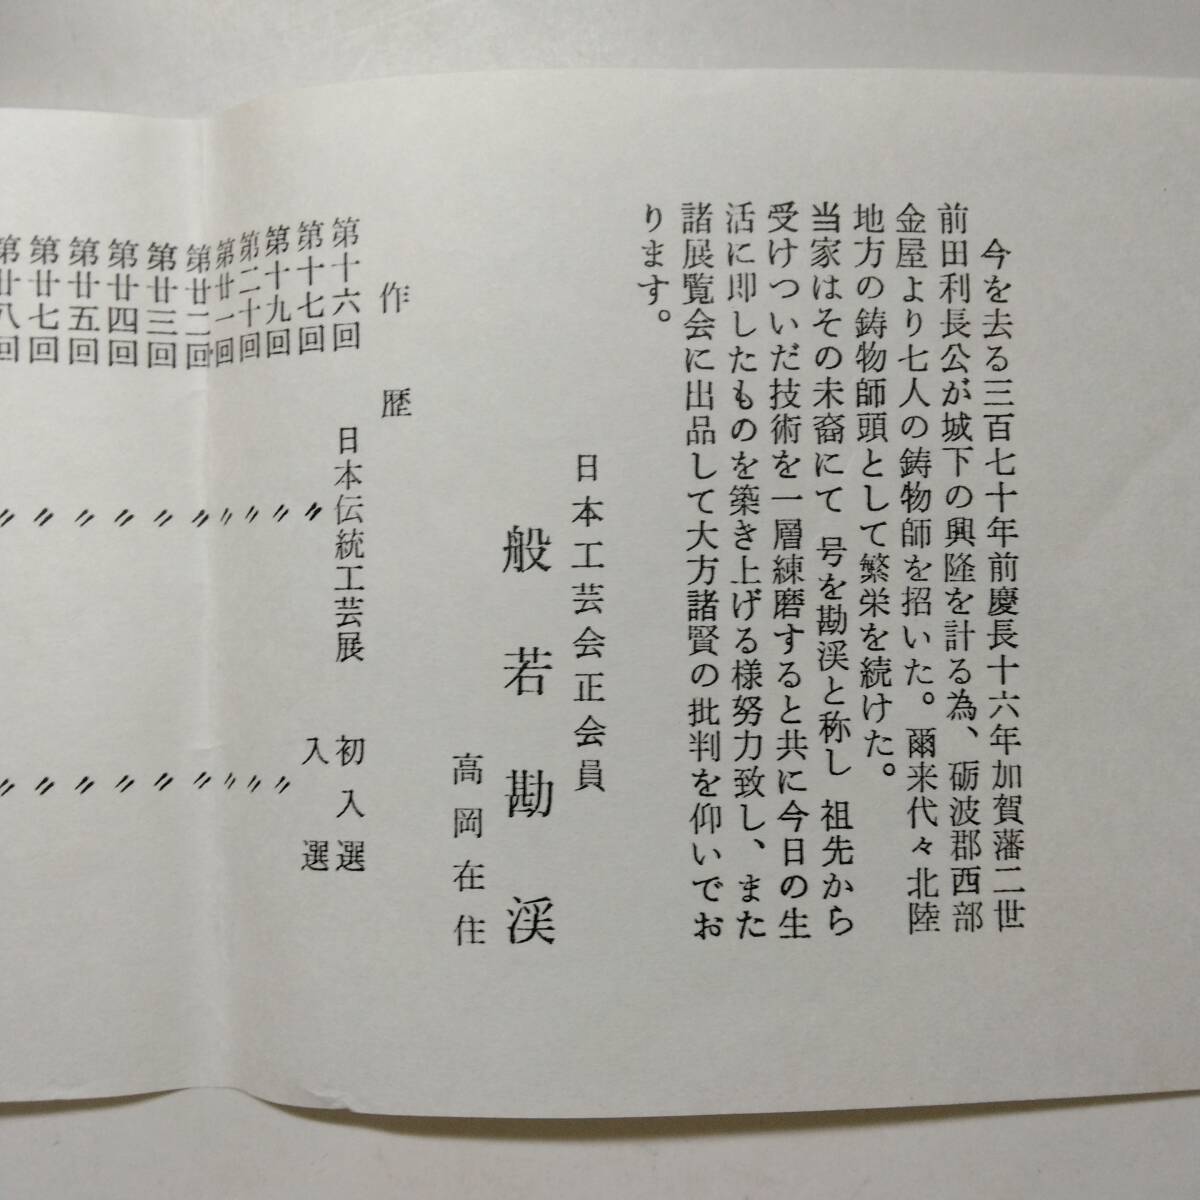 今を去る三百七十年前慶長十六年加賀藩二世
前田利長公が城下の興隆を計る為、砺波郡西部
金屋より七人の鋳物師を招いた。爾来代々北陸
地方の鋳物師頭として繁栄を続けた。
当家はその未裔にて 号を勘渓と称し 祖先から
受けついだ技術を一層練磨すると共に今日の生
活に即したものを築き上げる様努力致し、また
諸展覧会に出品して大方諸賢の批判を仰いでお
ります。
日本工芸会正会員
般若勘渓
高岡在住
作歴
第十六回 日本伝統工芸展 初入選
第十七回 〃 入選
第十九回 〃 〃
第二十回 〃 〃
第廿一回 〃 〃
第廿二回 〃 〃
第廿三回 〃 〃
第廿四回 〃 〃
第廿五回 〃 〃
第廿七回 〃 〃
第廿八回 〃 〃